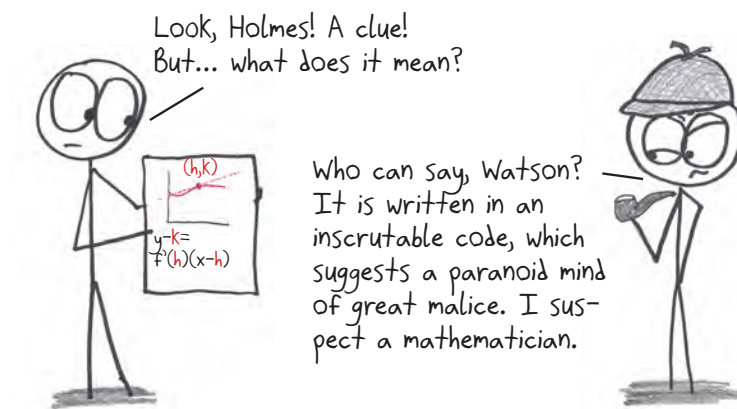 Look, Holmes! A clue!
But... what does it mean?
(h,k)
y-k=
f'(h)(x-h)
Who can say, Watson?
It is written in an
inscrutable code, which
suggests a paranoid mind
of great malice. I sus-
pect a mathematician.